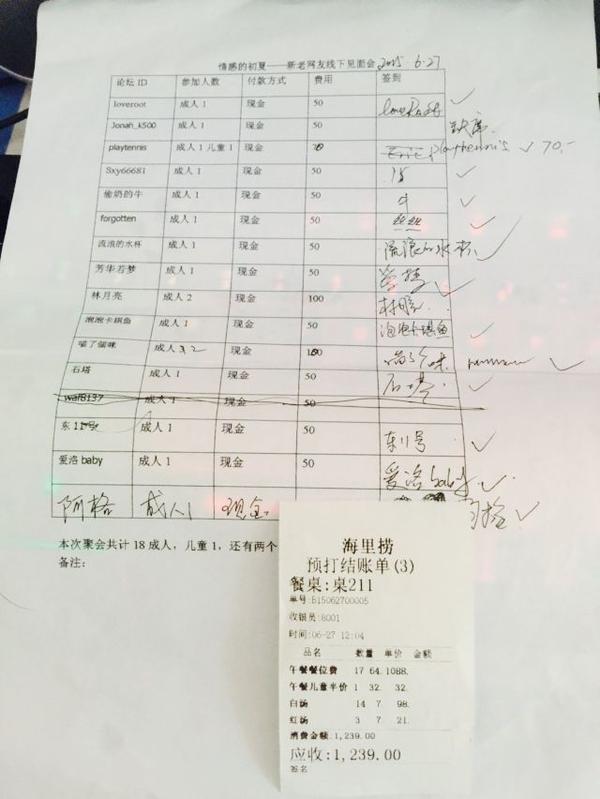 情感的初夏——新老网友线下见面会 2015.6.27
论坛 ID 参加人数 付款方式 费用 签到
loveroot 成人 1 现金 50
Jonah_k500 成人 1 现金 50 缺席
playtennis 成人 1 儿童 1 现金 playtennis 70.-
Sxy66681 成人 1 现金 50
偷奶的牛 成人 1 现金 50 牛
forgotten 成人 1 现金 50 丝丝
流浪的水杯 成人 1 现金 50 流浪的水杯
芳华若梦 成人 1 现金 50
林月亮 成人 2 现金 100
泡泡卡琪鱼 成人 1 现金 50 泡泡卡琪鱼
喵了個咪 成人 2 现金
石塔 成人 1 现金 50 石塔
waf8137 成人 1 现金 50
东 11 号 成人 1 现金 50 东11号
爱洛 baby 成人 1 现金 50 爱洛 baby
阿格 成人1 现金
本次聚会共计 18 成人，儿童 1，还有两个
备注：
海里捞
预打结账单(3)
餐桌:桌211
单号:B15062700005
收银员:8001
时间:06-27 12:04
品名 数量 单价 金额
午餐餐位费 17 64. 1088.
午餐儿童半价 1 32. 32.
白汤 14 7 98.
红汤 3 7 21.
消费金额:1,239.00
应收:1,239.00
签名